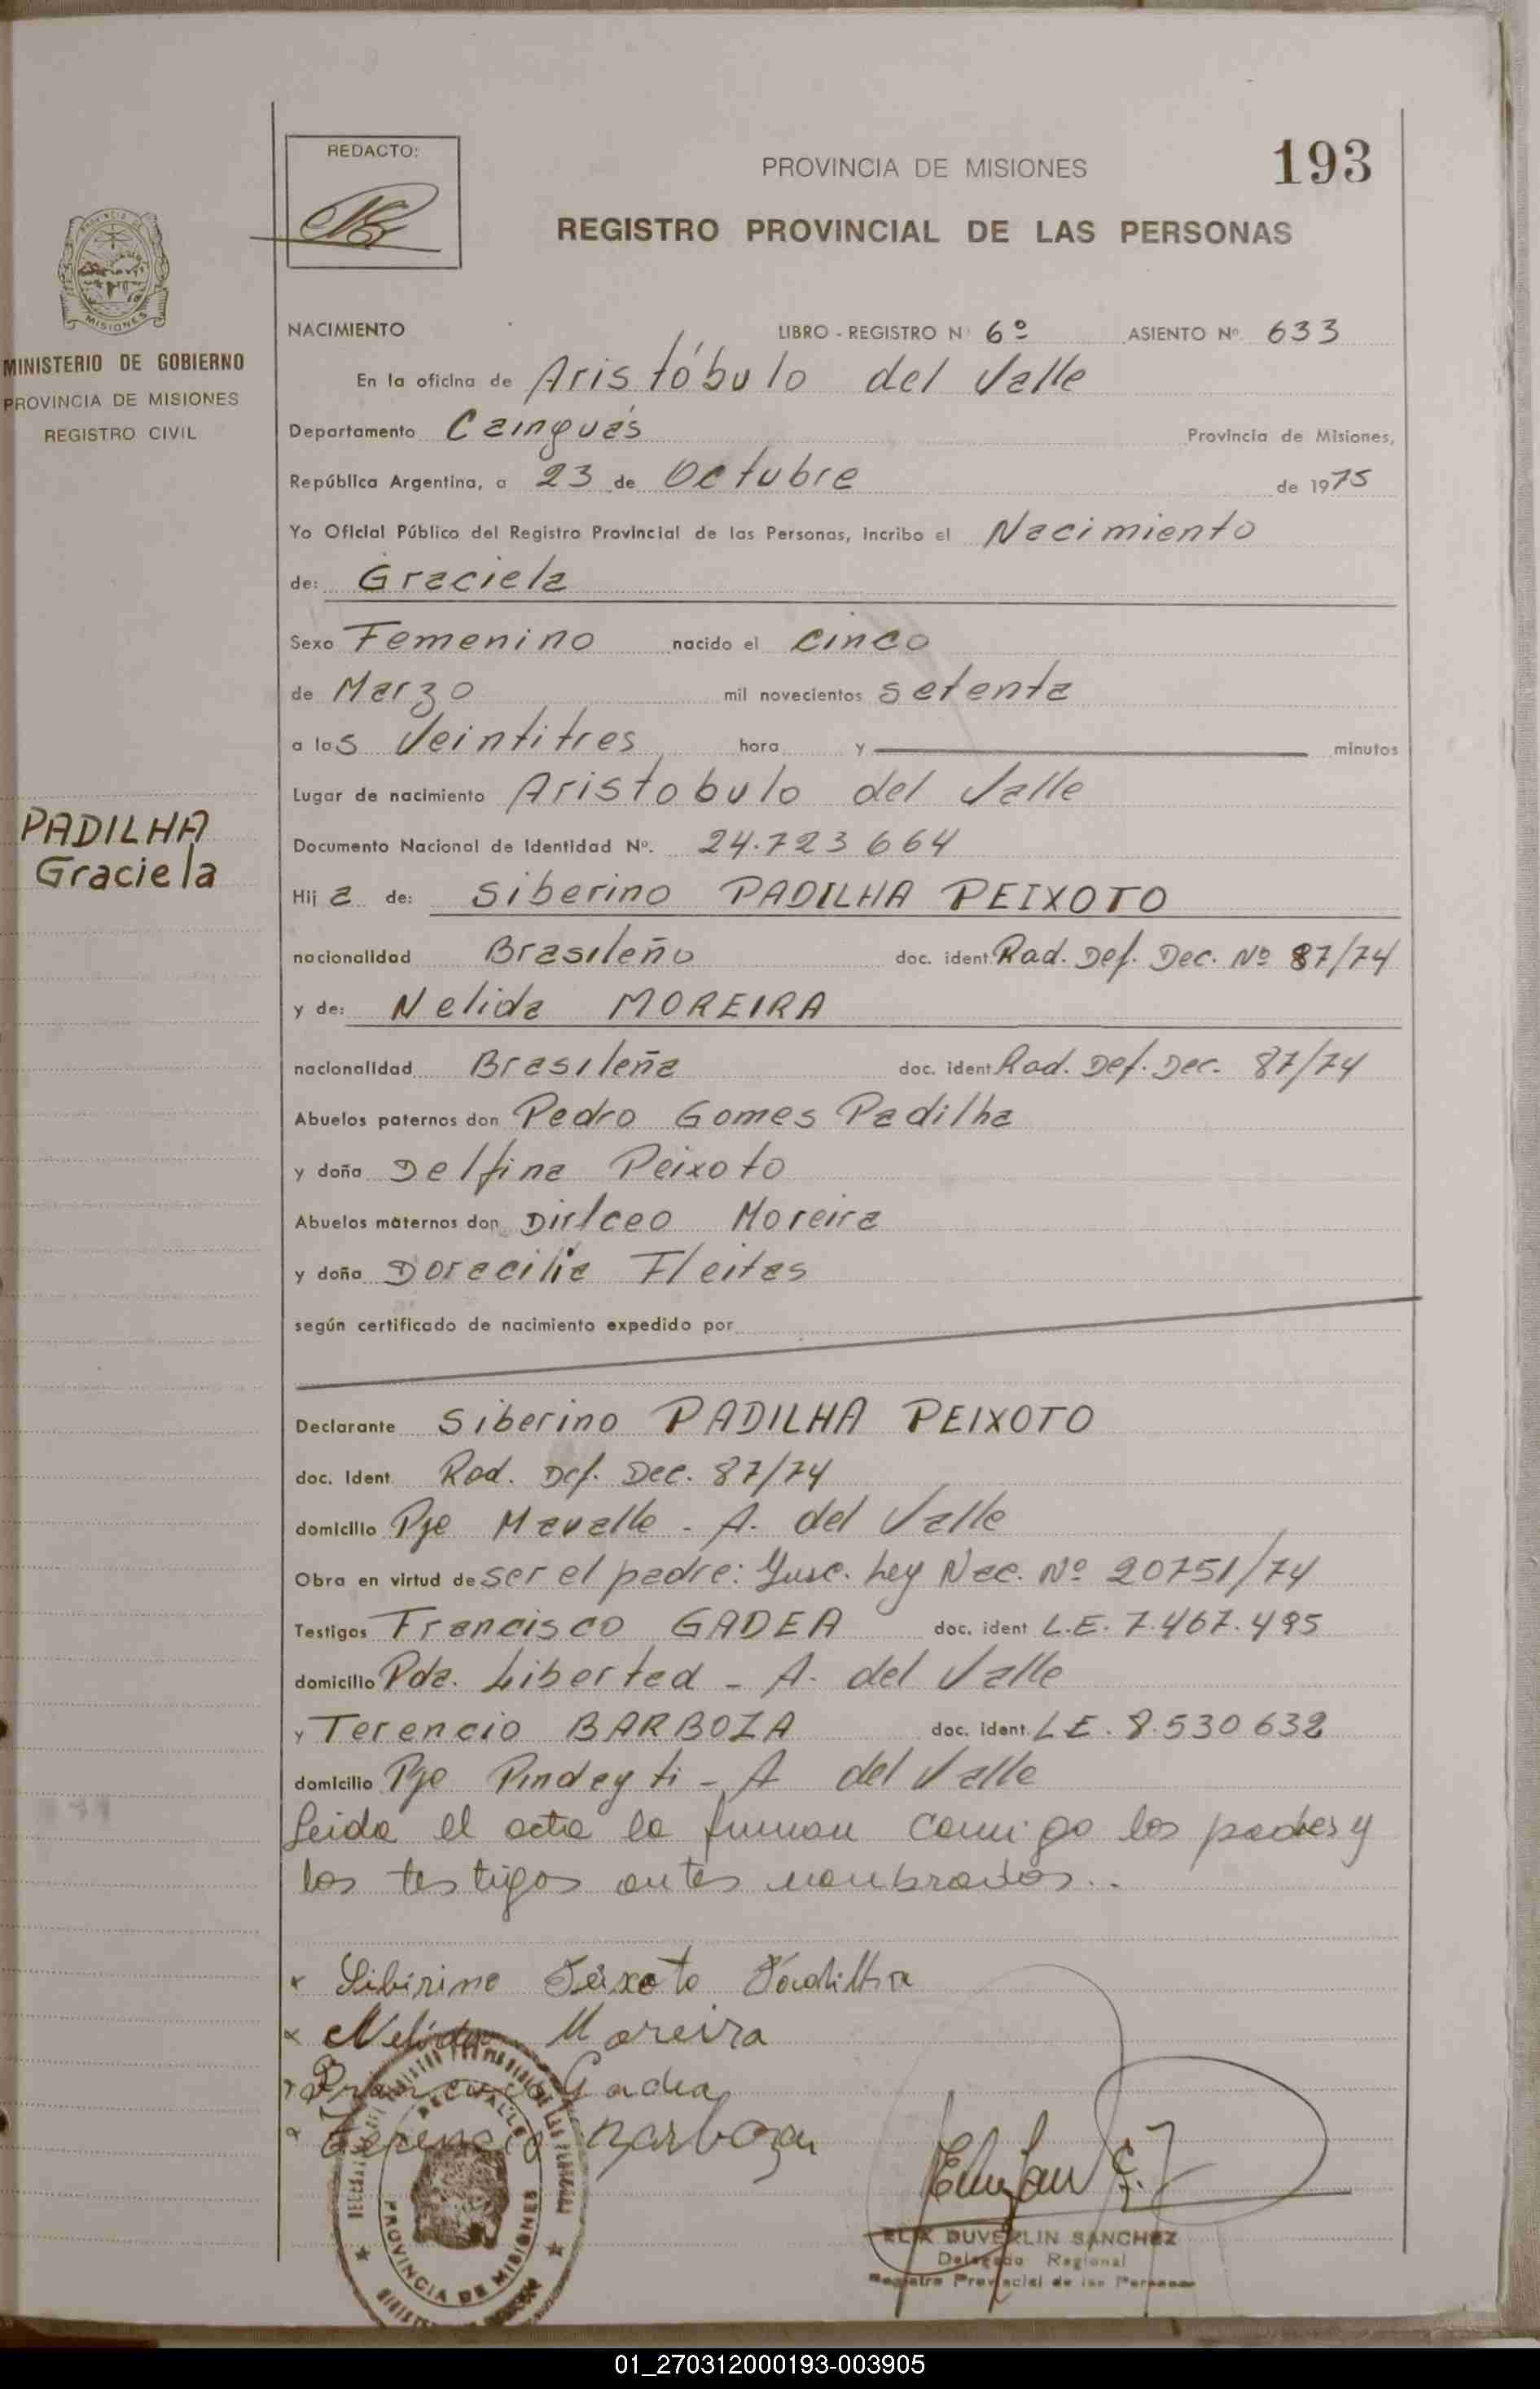 REDACTO:
PROVINCIA DE MISIONES
193
REGISTRO PROVINCIAL DE LAS PERSONAS
MISIONES
MINISTERIO DE GOBIERNO
PROVINCIA DE MISIONES
REGISTRO CIVIL
NACIMIENTO LIBRO - REGISTRO Nº 6º ASIENTO Nº 633
En la oficina de Aristóbulo del Valle
Departamento Cainguás Provincia de Misiones,
República Argentina, a 23 de Octubre de 1975
Yo Oficial Público del Registro Provincial de las Personas, incribo el Nacimiento
de: Graciela
Sexo Femenino nacido el cinco
de Marzo mil novecientos setenta
a las Veintitres hora y minutos
Lugar de nacimiento Aristobulo del Valle
Documento Nacional de Identidad Nº. 24.723664
PADILHA
Graciela
Hija de: Siberino PADILHA PEIXOTO
nacionalidad Brasileño doc. ident. Rad. Def. Dec. Nº 87/74
y de: Nelida MOREIRA
nacionalidad Brasileña doc. ident Rad. Def. Dec. 87/74
Abuelos paternos don Pedro Gomes Padilha
y doña Delfina Peixoto
Abuelos maternos don Dirlceo Moreira
y doña Doracilia Fleitas
según certificado de nacimiento expedido por
Declarante Siberino PADILHA PEIXOTO
doc. Ident. Rad. Def. Dec. 87/74
domicilio Pje Mavalle - A. del Valle
Obra en virtud de ser el padre: Insc. Ley Nac. Nº 20751/74
Testigos Francisco GADEA doc. ident L.E. 7.467.495
domicilio Pda. Libertad - A. del Valle
y Terencio BARBOZA doc. ident. L.E. 8.530632
domicilio Pje Pindayti - A del Valle
Leida el acta la firman comigo los padres y
los testigos antes nombrados..
x Sibirino Peixoto Padilha
x Nelida Moreira
x Francisco Gadea
x Terencio Barboza
DEL VALLE
PROVINCIA DE MISIONES
ELIX DUVERLIN SANCHEZ
Delegado Regional
Registro Provincial de las Personas
01_270312000193-003905